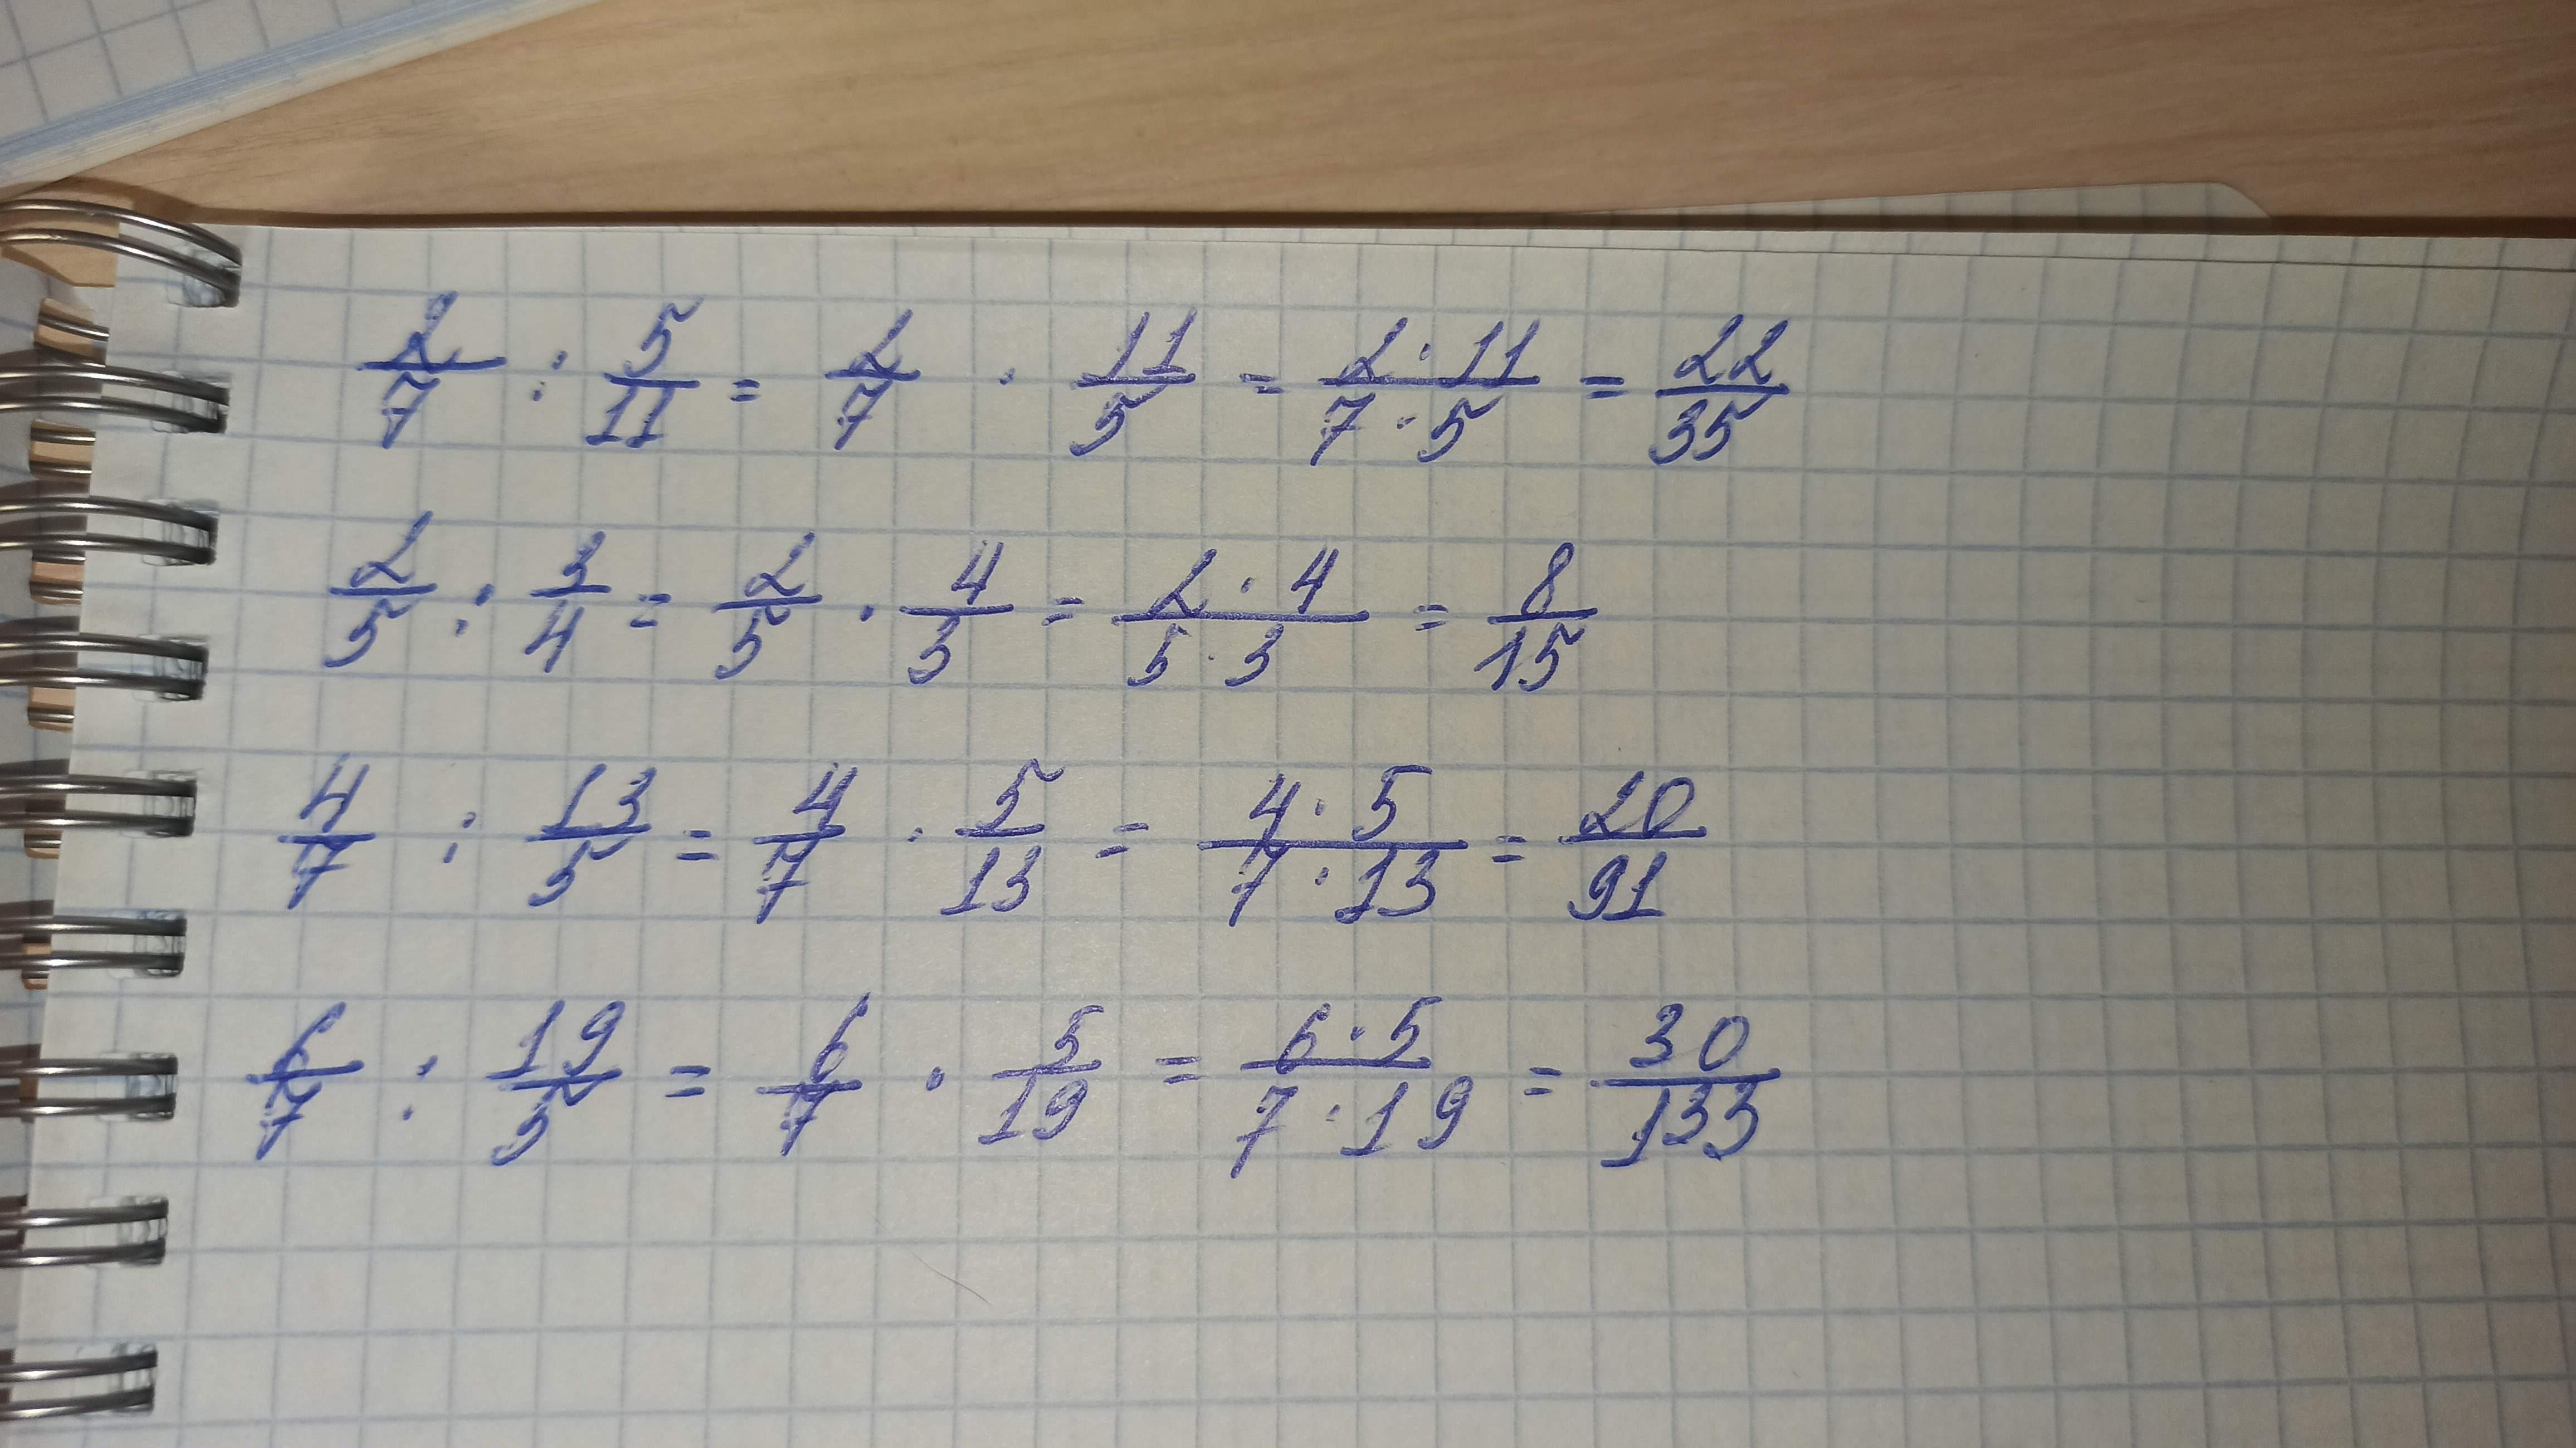 2/7 : 5/11 = 2/7 · 11/5 = 2·11/7·5 = 22/35
2/5 : 3/4 = 2/5 · 4/3 = 2·4/5·3 = 8/15
4/7 : 13/5 = 4/7 · 5/13 = 4·5/7·13 = 20/91
6/7 : 19/5 = 6/7 · 5/19 = 6·5/7·19 = 30/133